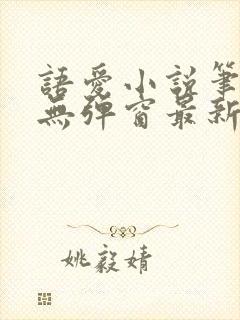 語愛小說筆
無彈窗最新
姚毅婧